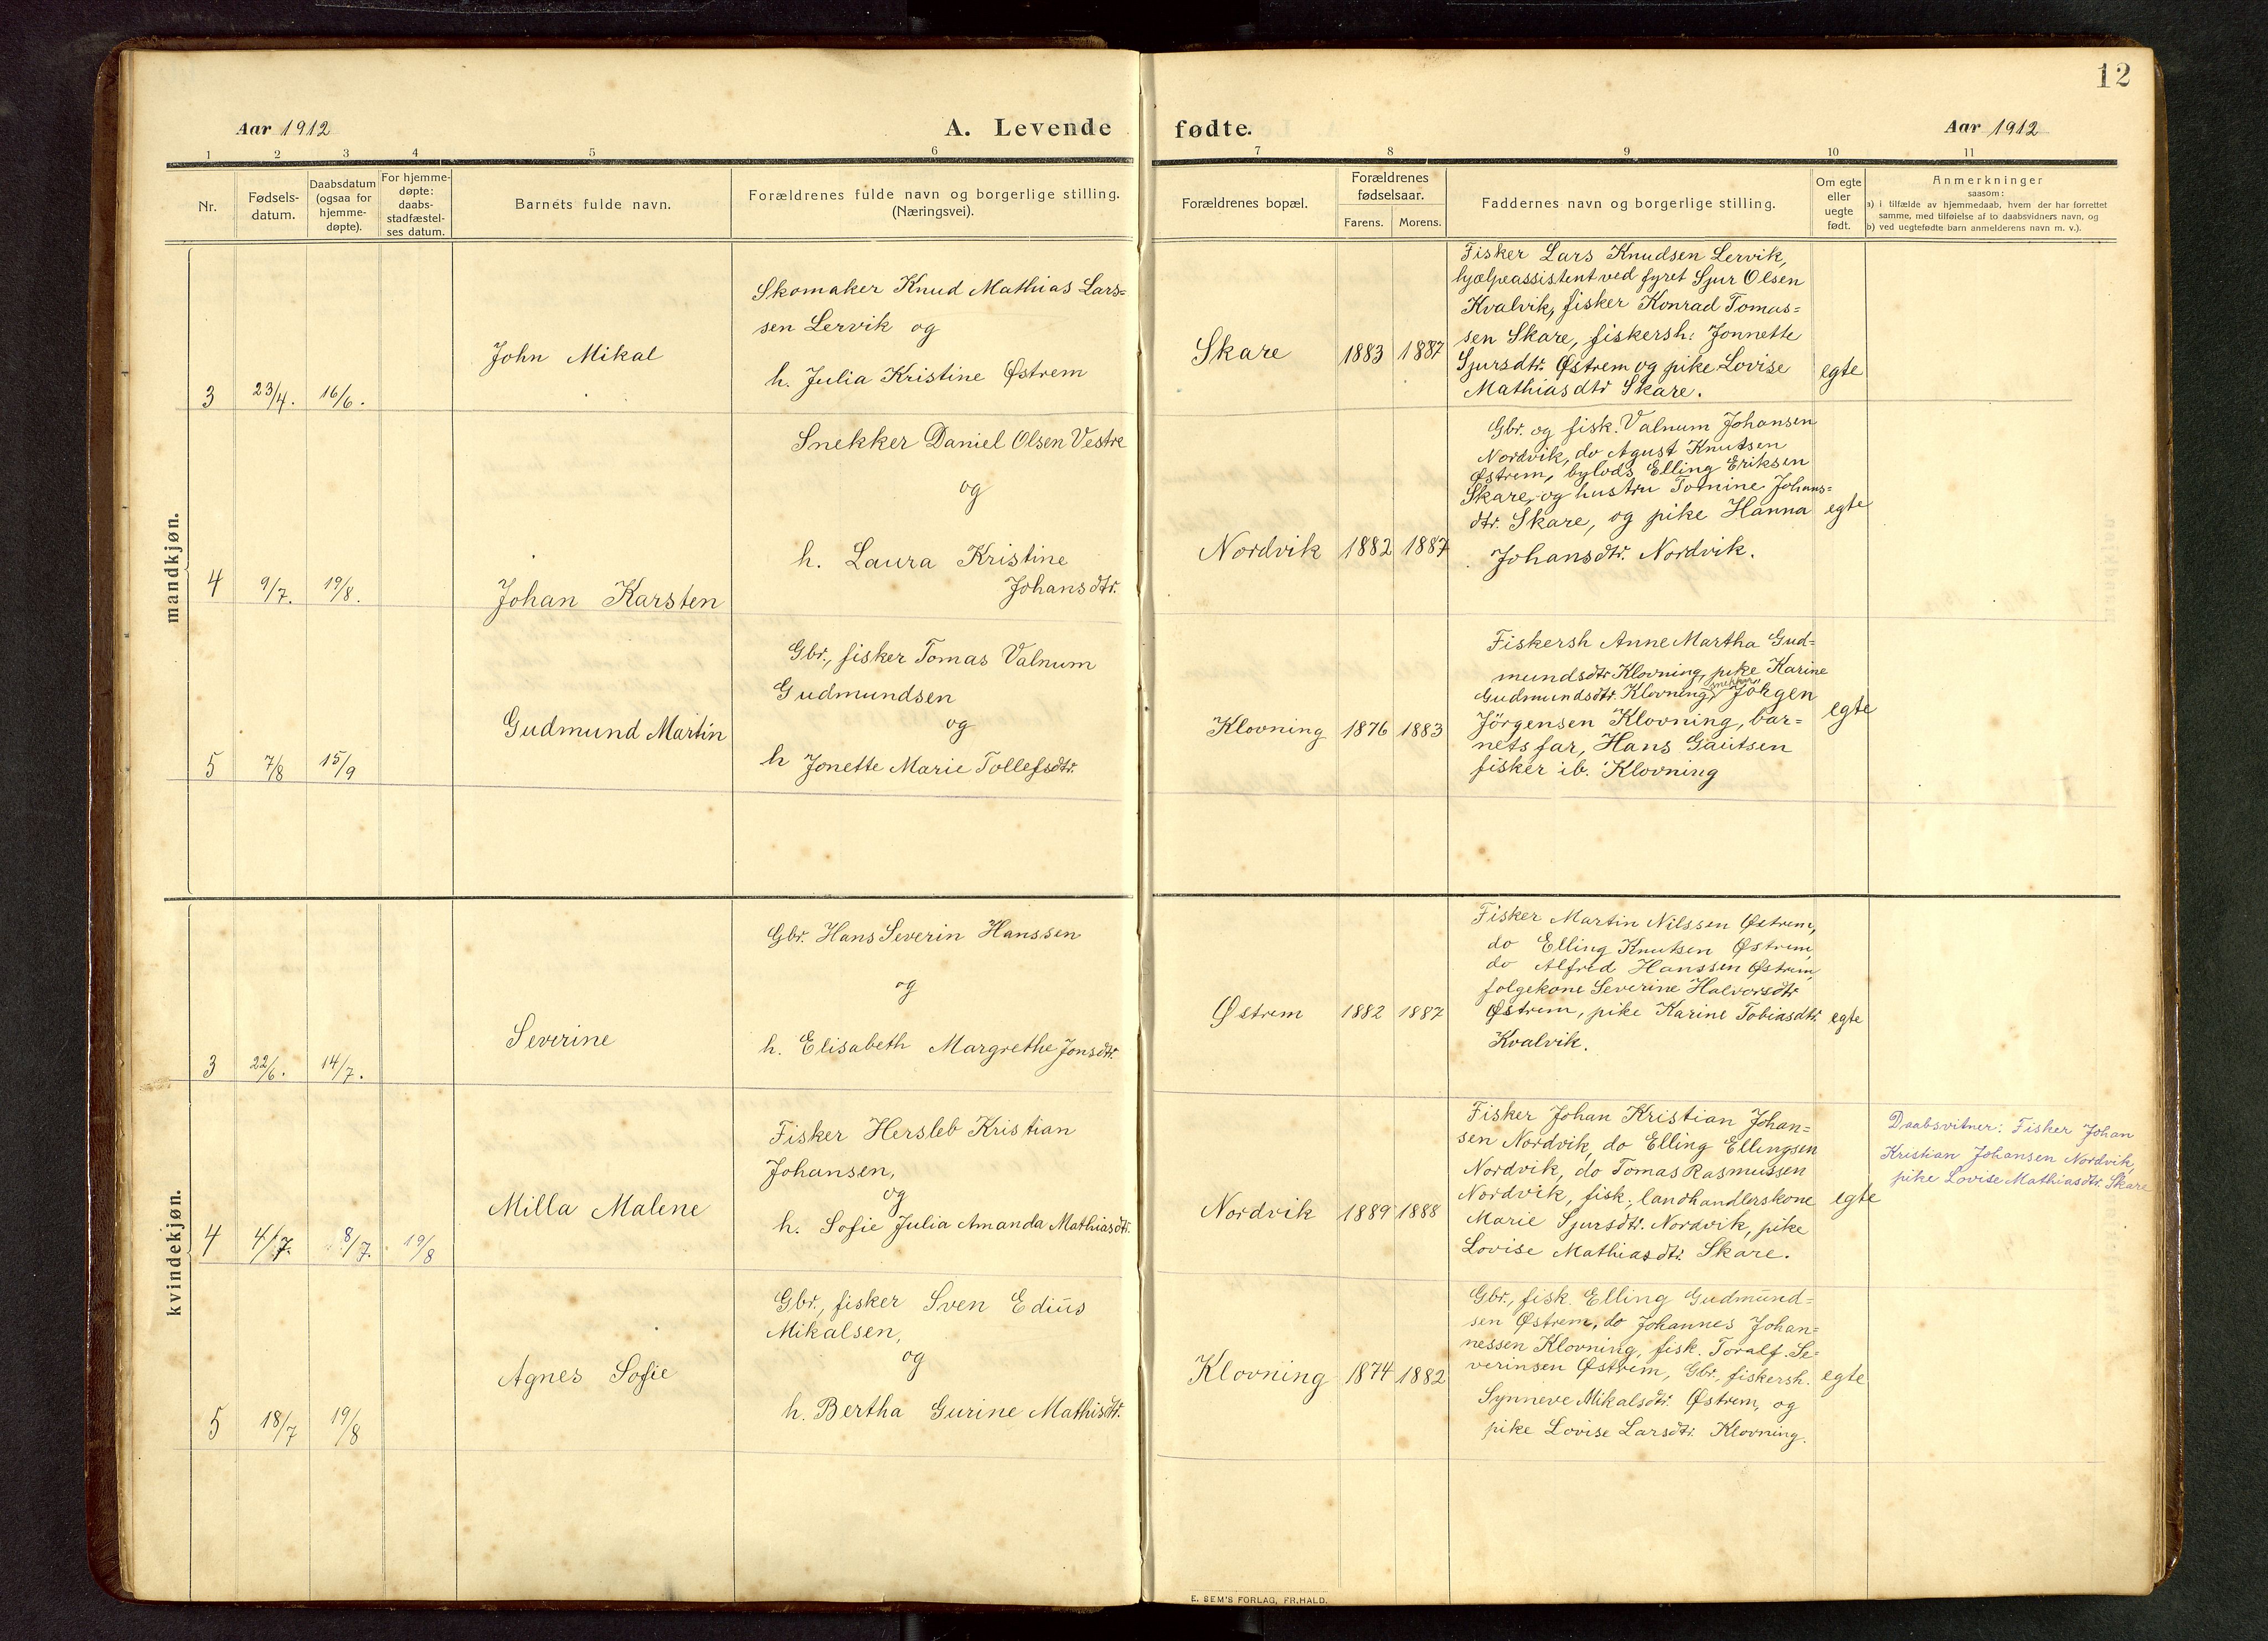 12
Aar 1912
A. Levende fødte.
Aar 1912
1 2 3 4 5 6 7 8 9 10 11
Nr.
Fødsels-
datum.
Daabsdatum
(ogsaa for
hjemme-
døpte).
For hjemme-
døpte:
daabs-
stadfæstel-
ses datum.
Barnets fulde navn.
Forældrenes fulde navn og borgerlige stilling.
(Næringsvei).
Forældrenes bopæl.
Forældrenes
fødselsaar.
Farens. Morens.
Faddernes navn og borgerlige stilling.
Om egte
eller
uegte
født.
Anmerkninger
saasom:
a) i tilfælde av hjemmedaab, hvem der har forrettet
samme, med tilføielse af to daabsvidners navn, og
b) ved uegtefødte barn anmelderens navn m. v.).
mandkjøn.
3 23/4. 16/6.
John Mikal
Skomaker Knud Mathias Lars=
sen Lervik og
h. Julia Kristine Østrem
Skare 1883 1887
Fisker Lars Knudsen Lervik,
hjælpeassistent ved fyret Sjur Olsen
Kvalvik, fisker Konrad Tomas=
sen Skare, fiskersh: Jonnette
Sjursdtr. Østrem og pike Lovise
Mathiasdtr Skare.
egte
4 9/7. 19/8.
Johan Karsten
Snekker Daniel Olsen Vestre
og
h. Laura Kristine
Johansdtr.
Nordvik 1882 1887
Gbr. og fisk. Valnum Johansen
Nordvik, do Agust Knutsen
Østrem, bylods Elling Eriksen
Skare, og hustru Tomine Johans=
dtr. Skare, og pike Hanna
Johansdtr. Nordvik.
egte
5 7/8 15/9
Gudmund Martin
Gbr., fisker Tomas Valnum
Gudmundsen
og
h Jonette Marie Tollefsdtr.
Klovning 1876 1883
Fiskersh Anne Martha Gud=
mundsdtr Klovning, pike Karine
Gudmundsdtr. Klovning, snekker Jörgen
Jörgensen Klovning, bar=
nets far, Hans Gautsen
fisker ib. Klovning
egte
kvindekjøn.
3 22/6. 14/7.
Severine
Gbr. Hans Severin Hanssen
og
h. Elisabeth Margrethe Jonsdtr.
Østrem 1882 1887
Fisker Martin Nilssen Østrem,
do Elling Knutsen Østrem,
do Alfred Hanssen Østrem,
folgekone Severine Halvorsdtr
Østrem, pike Karine Tobiasdtr.
Kvalvik.
egte
4 4/7. 8/7. 19/8
Milla Malene
Fisker Hersleb Kristian
Johansen,
og
h. Sofie Julia Amanda Mathiasdtr.
Nordvik 1889 1888
Fisker Johan Kristian Johan=
sen Nordvik, do Elling Ellingsen
Nordvik, do Tomas Rasmussen
Nordvik, fisk., landhandlerskone
Marie Sjursdtr. Nordvik, pike
Lovise Mathiasdtr. Skare.
egte
Daabsvitner: Fisker Johan
Kristian Johansen Nordvik,
pike Lovise Mathiasdtr. Skare
5 18/7 19/8
Agnes Sofie
Gbr., fisker Sven Edius
Mikalsen,
og
h. Bertha Gurine Mathisdtr.
Klovning 1874 1882
Gbr., fisk. Elling Gudmund=
sen Østrem, do Johannes Johan=
nessen Klovning, fisk. Toralf Se=
verinsen Østrem, Gbr., fiskersh.
Synneve Mikalsdtr. Østrem, og
pike Lovise Larsdtr. Klovning.
egte
E. SEM'S FORLAG, FR.HALD.